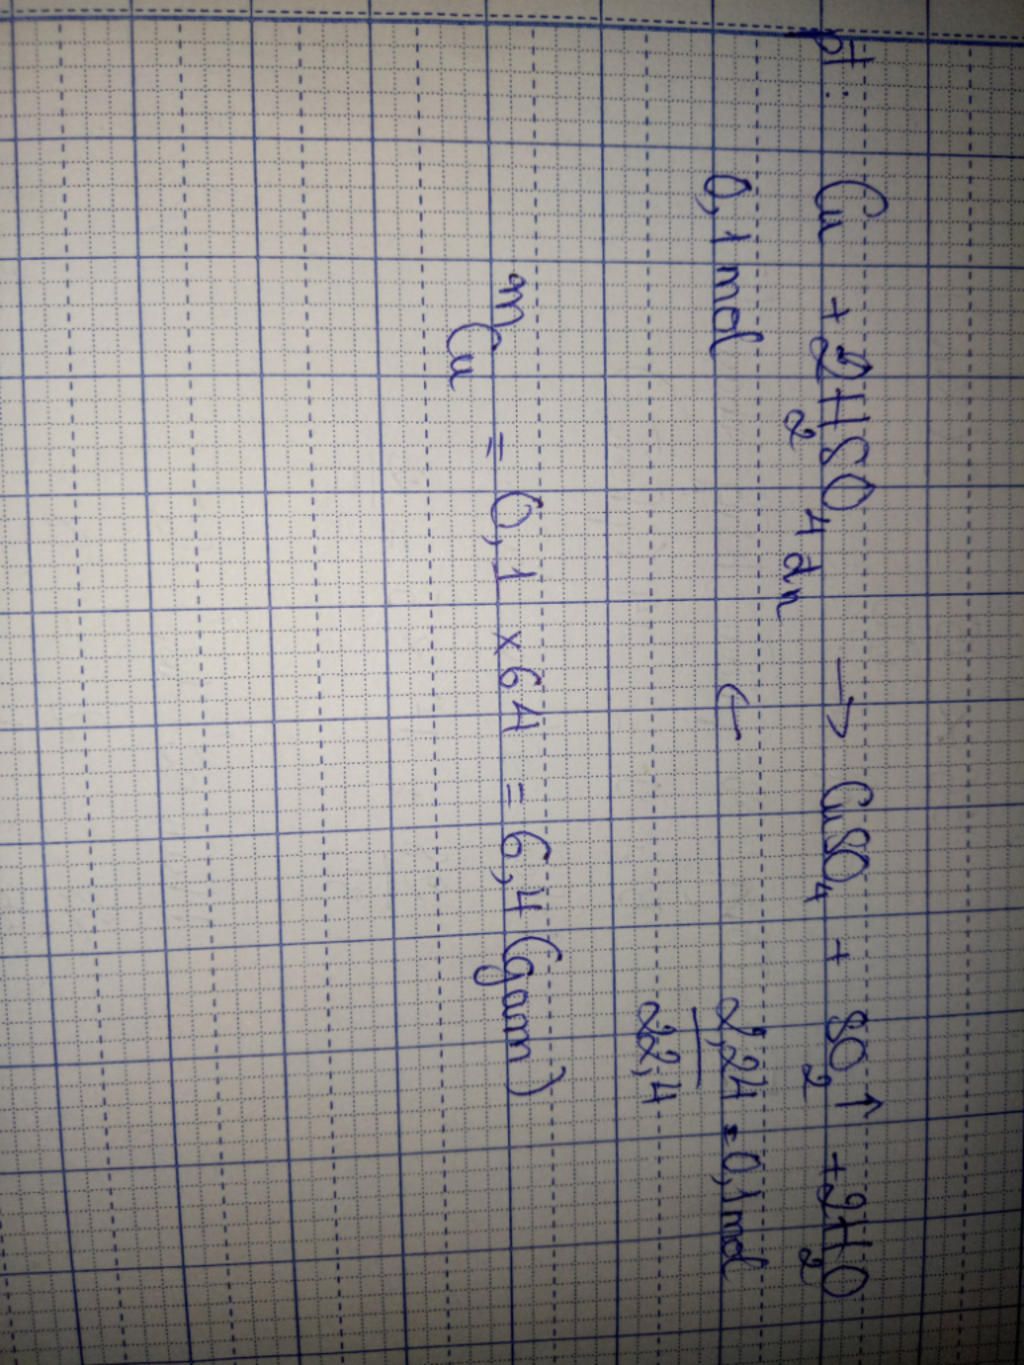 pt: Cu + 2H₂SO₄ đn → CuSO₄ + SO₂↑ + 2H₂O
0,1 mol ← 2,24/22,4 = 0,1 mol
mCu = 0,1 × 64 = 6,4 (gam)